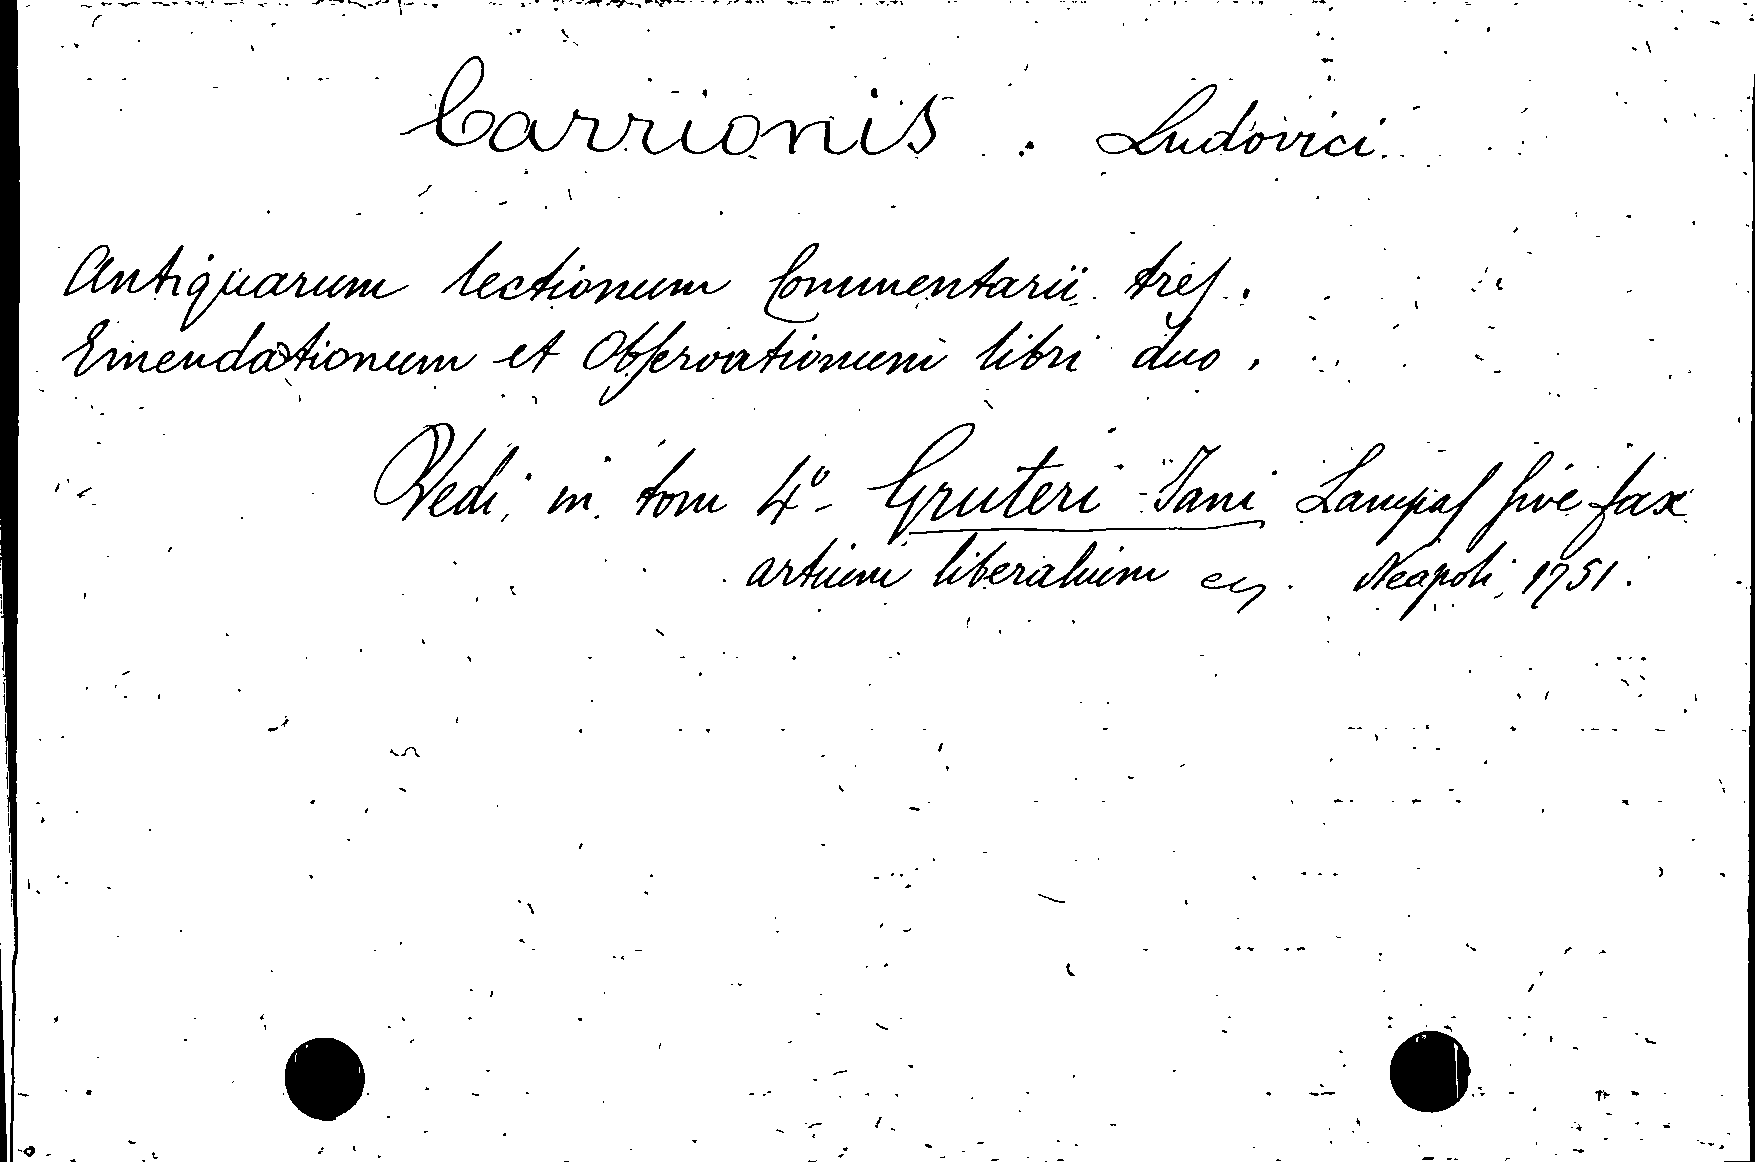 Carrionis . Ludovici
Antiquarum lectionum Commentarii tres.
Emendationum et Observationum libri duo.
Vedi, in tom 4° - Gruteri - Jani Lampas sive fax
artium liberalium Neapoli, 1751.